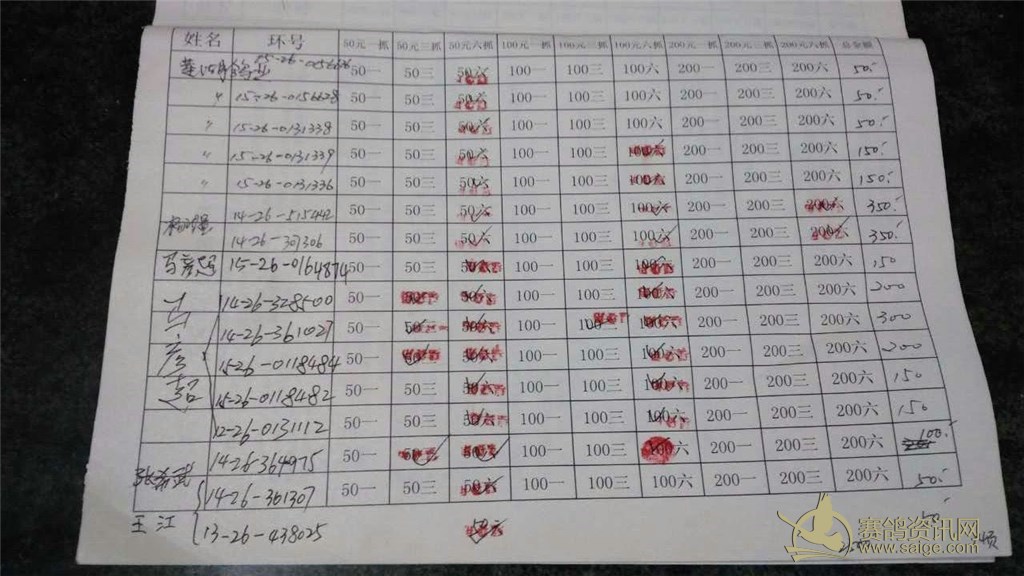 姓名 环号 50元一抓 50元三抓 50元六抓 100元一抓 100元三抓 100元六抓 200元一抓 200元三抓 200元六抓 总金额
50一 50三 50六 100一 100三 100六 200一 200三 200六 50.
〃 15-26-0156628 50一 50三 50六 100一 100三 100六 200一 200三 200六 50.
〃 15-26-0131338 50一 50三 50六 100一 100三 100六 200一 200三 200六 50.
〃 15-26-0131339 50一 50三 50六 100一 100三 100六 200一 200三 200六 150.
〃 15-26-0131336 50一 50三 50六 100一 100三 100六 200一 200三 200六 150.
14-26-515442 50一 50三 50六 100一 100三 100六 200一 200三 200六 350.
14-26-307306 50一 50三 50六 100一 100三 100六 200一 200三 200六 350.
15-26-0164874 50一 50三 50六 100一 100三 100六 200一 200三 200六 150
14-26-328500 50一 50三 50六 100一 100三 100六 200一 200三 200六 200
14-26-361027 50一 50三 50六 100一 100三 100六 200一 200三 200六 300
15-26-0118484 50一 50三 50六 100一 100三 100六 200一 200三 200六 200
15-26-0118482 50一 50三 50六 100一 100三 100六 200一 200三 200六 150
12-26-0131112 50一 50三 50六 100一 100三 100六 200一 200三 200六 150
14-26-364975 50一 50三 50六 100一 100三 100六 200一 200三 200六 100.
14-26-361307 50一 50三 50六 100一 100三 100六 200一 200三 200六 50.
王江 13-26-438025 50六 50
赛鸽资讯网
www.saige.com